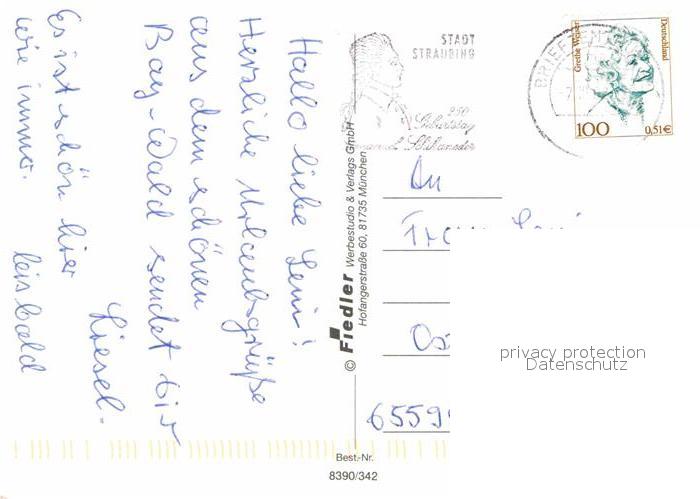 Hallo liebe Leni!
Herzliche Urlaubsgrüße
aus dem schönen
Bay-Wald sendet Dir
Liesel.
Es ist schön hier
wie immer. bis bald
© Fiedler Werbestudio & Verlags GmbH
Hofangerstraße 60, 81735 München
Best.-Nr.
8390/342
STADT
STRAUBING
250.
Geburtstag
Schikaneder
BRIEFZEN
Grethe Weiser
Deutschland
100
0,51€
An
Frau Leni
65599
privacy protection
Datenschutz